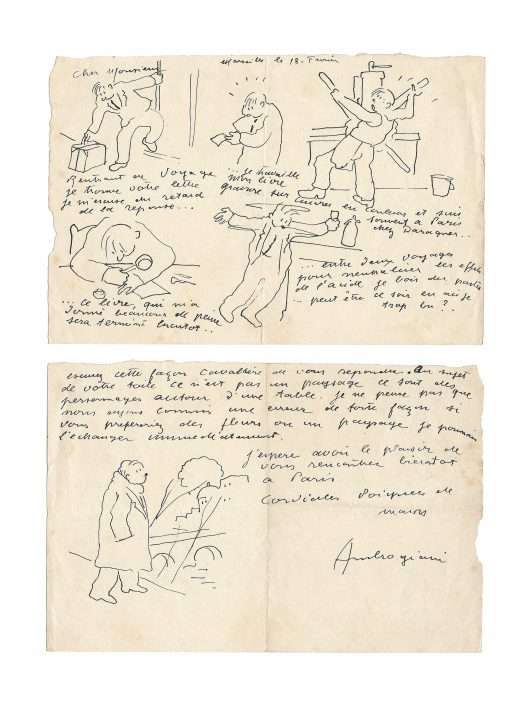 Marseille le 18 Fevrier
Cher Monsieur
Rentrant de voyage
je trouve votre lettre
je m'excuse du retard
de la reponse...
... je travaille
mon livre
gravure sur cuivres en couleurs et suis
souvent à Paris
chez Daragnes..
... entre deux voyages
pour neutraliser les effets
de l'acide je bois des pastis
... peut être ce soir en ai-je
trop bu ?..
... le livre, qui m'a
donné beaucoup de peine
sera terminé bientot..
excusez cette façon cavalière de vous repondre. Au sujet
de votre toile ce n'est pas un paysage ce sont des
personnages autour d'une table. je ne pense pas que
nous ayons commis une erreur de toute façon si
vous prefereriez des fleurs ou un paysage je pourrais
l'échanger immediatement.
J'espere avoir le plaisir de
vous rencontrer bientot
à Paris
Cordiales Poignees de
mains
Ambrogiani